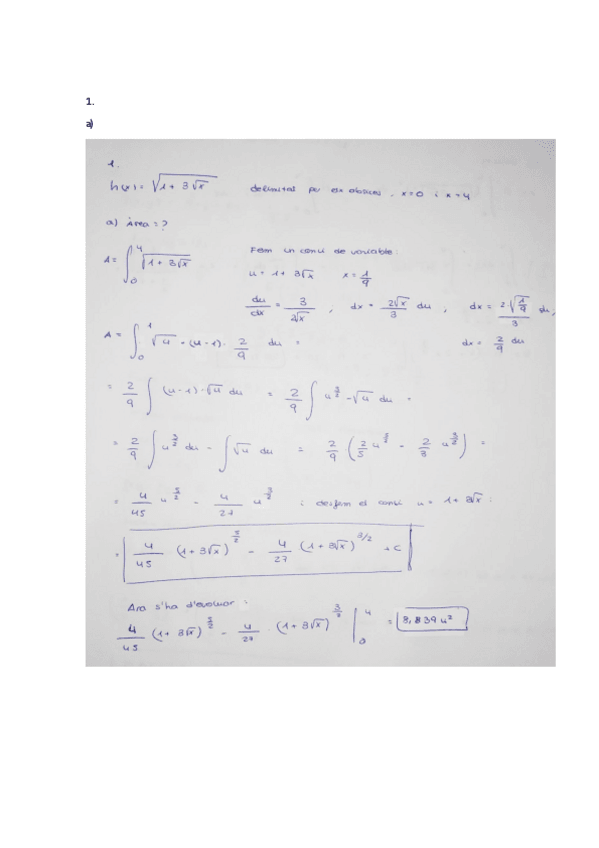 1.
a)
1.
h(x) = √(1+3√x) delimitat per eix abscises, x=0 i x=4
a) Àrea = ?
A = ∫₀⁴ √(1+3√x) Fem un canvi de variable:
u = 1+3√x x = 1/9
du/dx = 3/(2√x) , dx = 2√x/3 du , dx = 2·√(1/9)/3 du,
A = ∫₀¹ √u · (u-1) · 2/9 du = dx = 2/9 du
= 2/9 ∫ (u-1)·√u du = 2/9 ∫ u^(3/2) - √u du =
= 2/9 ∫ u^(3/2) du - ∫ √u du = 2/9 (2/5 u^(5/2) - 2/3 u^(3/2)) =
= 4/45 u^(5/2) - 4/27 u^(3/2) i desfem el canvi u = 1+3√x :
= 4/45 (1+3√x)^(5/2) - 4/27 (1+3√x)^(3/2) + C
Ara s'ha d'evaluar:
4/45 (1+3√x)^(5/2) - 4/27 (1+3√x)^(3/2) |₀⁴ = 8,839 u²